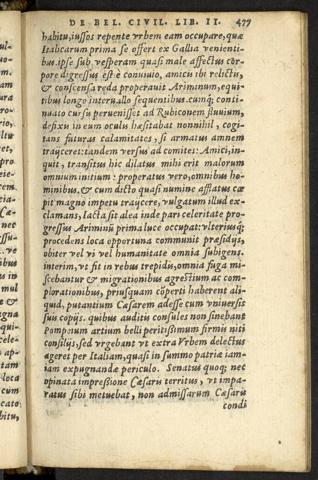 DE BEL. CIVIL. LIB. II. 477
habitu, iussos repente vrbem eam occupare, quæ
Italicarum prima se offert ex Gallia venienti
bus. ipse sub vesperam quasi male affectus cor
pore digressus est è conuiuio, amicis ibi relictis,
& conscensa reda properauit Ariminum, equi
tibus longo interuallo sequentibus. cunq; conti
nuato cursu peruenisset ad Rubiconem fluuium,
defixis in eum oculis hæsitabat nonnihil, cogi
tans futuras calamitates, si armatus amnem
traijceret: tandem versus ad comites: Amici, in-
quit, transitus hic dilatus mihi erit malorum
omnium initium: properatus vero, omnibus ho
minibus. & cum dicto quasi numine afflatus cœ
pit magno impetu traijcere, vulgatum illud ex-
clamans, Iacta sit alea inde pari celeritate pro-
gressus Arimini prima luce occupat: vlteriusq;
procedens loca opportuna communit præsidijs,
obiter vel vi vel humanitate omnia subigens.
interim, vt fit in rebus trepidis, omnia fuga mi-
scebantur & migrationibus agrestium ac com
plorationibus, priusquam cōperti haberent ali-
quid, putantium Cæsarem adesse cum vniuersis
suis copijs. quibus auditis consules non sinebant
Pompeium artium belli peritissimum firmis niti
consilijs, sed vrgebant vt extra Vrbem delectus
ageret per Italiam, quasi in summo patriæ iam-
iam expugnandæ periculo. Senatus quoq; nec
opinata impressione Cæsaris territus, vt impa-
ratus sibi metuebat, non admissarum Cæsaris
condi